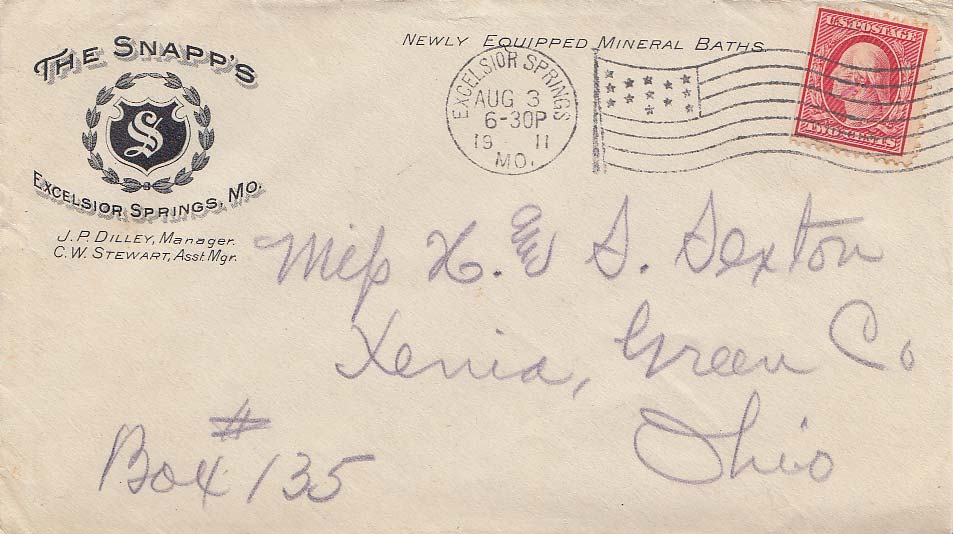 THE SNAPP'S
S
EXCELSIOR SPRINGS, MO.
J. P. DILLEY, Manager.
C. W. STEWART, Asst. Mgr.
NEWLY EQUIPPED MINERAL BATHS.
EXCELSIOR SPRINGS
AUG 3
6-30P
19 11
MO.
U.S. POSTAGE
TWO CENTS
Miss H. S. Sexton
Xenia, Green Co
Ohio
#
Box 135